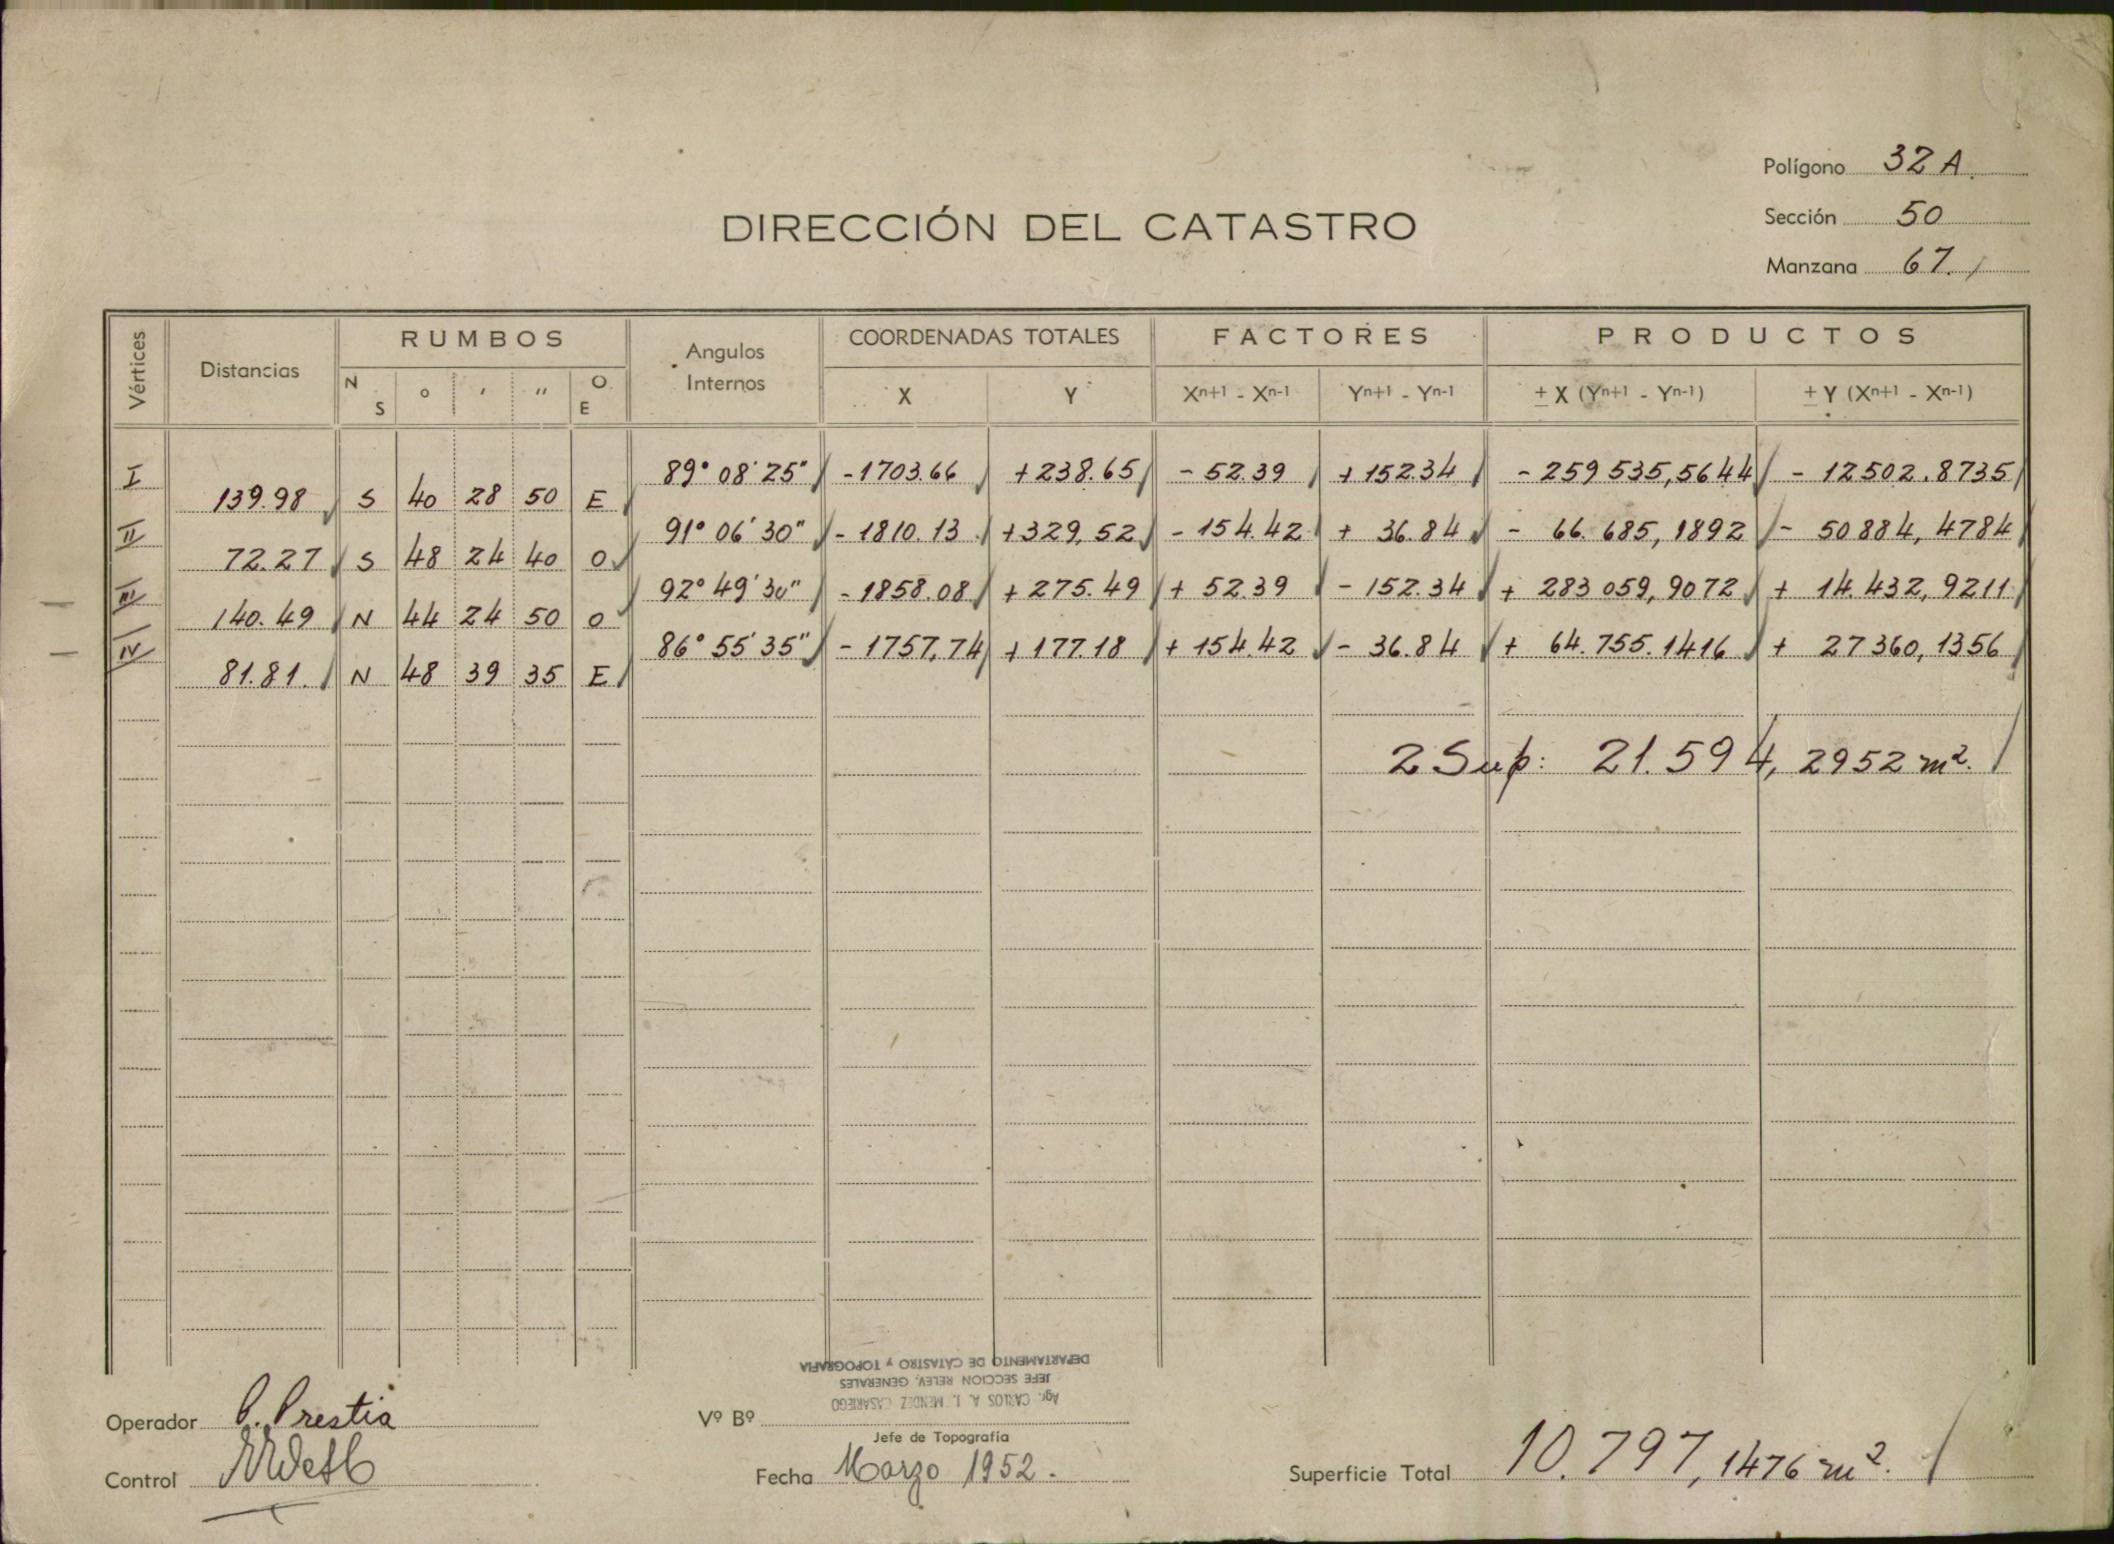 Polígono 32 A.
Sección 50
Manzana 67.
DIRECCIÓN DEL CATASTRO
Vértices Distancias RUMBOS Angulos Internos COORDENADAS TOTALES FACTORES PRODUCTOS
N S ° ' " O. E X Y Xn+1 - Xn-1 Yn+1 - Yn-1 ± X (Yn+1 - Yn-1) ± Y (Xn+1 - Xn-1)
I 89° 08' 25" - 1703.66 + 238.65 - 52.39 + 152.34 - 259 535,5644 - 12502.8735
139.98 S 40 28 50 E
II 91° 06' 30" - 1810.13 + 329,52 - 154.42 + 36.84 - 66.685,1892 - 50884,4784
72.27 S 48 24 40 O
III 92° 49' 30" - 1858.08 + 275.49 + 52.39 - 152.34 + 283 059,9072 + 14.432,9211
140.49 N 44 24 50 O
IV 86° 55' 35" - 1757,74 + 177.18 + 154.42 - 36.84 + 64.755.1416 + 27360,1356
81.81. N 48 39 35 E
2 Sup: 21.594,2952 m².
DEPARTAMENTO DE CATASTRO y TOPOGRAFIA
JEFE SECCION RELEV. GENERALES
Agr. CARLOS A. I. MENDEZ CASARIEGO
Operador P. Prestia
Vº Bº
Jefe de Topografía
Control
Fecha Marzo 1952.
Superficie Total 10.797,1476 m².